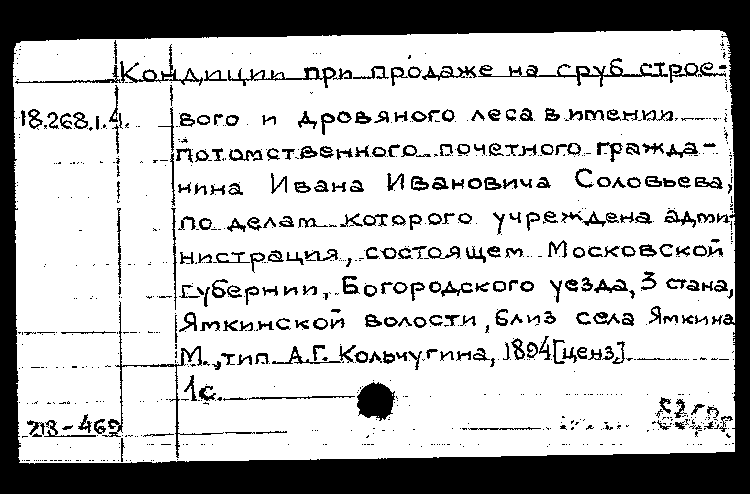 Кондиции при продаже на сруб строе-
18.268.1.4. вого и дровяного леса в имении
потомственного почетного гражда-
нина Ивана Ивановича Соловьева,
по делам которого учреждена адми-
нистрация, состоящем Московской
губернии, Богородского уезда, 3 стана,
Ямкинской волости, близ села Ямкина
М., тип. А.Г. Кольчугина, 1894 [ценз.].
1с.
218-469